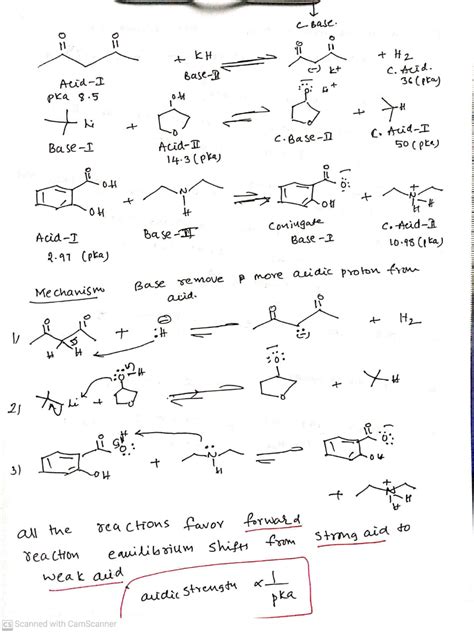 C-Base.
O O + KH ⇌ O O + H2
Acid-I Base-II (-) K+ C. Acid.
pKa 8.5 36 (pKa)
Li + OH O ⇌ O Li+ + H
Base-I Acid-II C. Base-II C. Acid-I
14.3 (pKa) 50 (pKa)
O OH OH + N H ⇌ O O OH + N H H
Acid-I Base-II Conjugate C. Acid-II
2.97 (pKa) Base-I 10.98 (pKa)
Mechanism Base remove more acidic proton from
acid.
1) O O H H + :H ⇌ O O (-) + H2
2) Li + O H O ⇌ O O + H
3) O O H OH + N H ⇌ O O OH
+ N H H
all the reactions favor forward
reaction equilibrium shifts from strong aid to
weak aid
acidic strength ∝ 1/pKa
CS Scanned with CamScanner